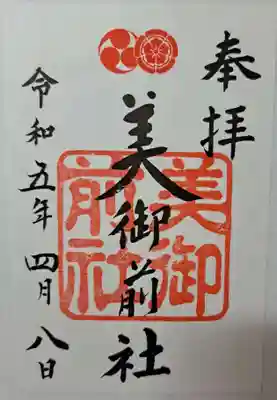 奉拝
美御前社
美御前社
令和五年四月八日